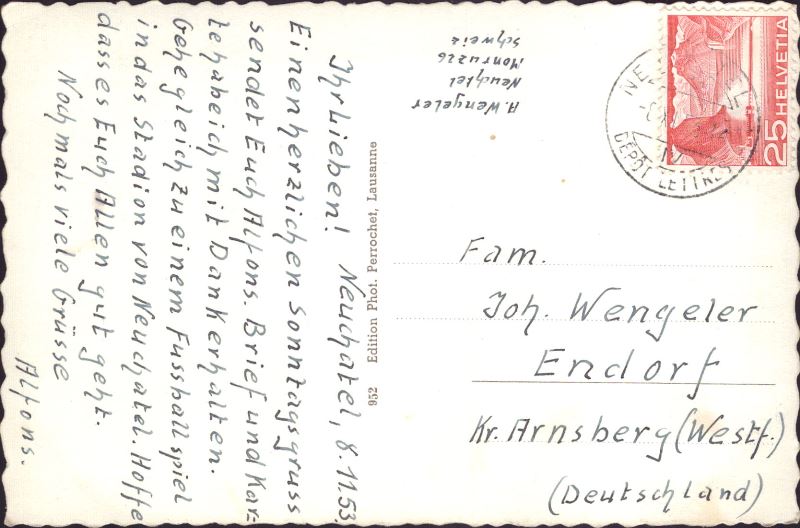 Ihr Lieben! Neuchatel, 8.11.53
Einen herzlichen Sonntagsgruss
sendet Euch Alfons. Brief und Kar=
te habe ich mit Dank erhalten.
Gehe gleich zu einem Fussballspiel
in das Stadion von Neuchatel. Hoffe
dass es Euch Allen gut geht.
Nochmals viele Grüsse
Alfons.
952 Edition Phot. Perrochet, Lausanne
A. Wengeler
Neuchtel
Monruz26
Schweiz
HELVETIA
25
DÉPÔT LETTRES
Fam.
Joh. Wengeler
Endorf
Kr. Arnsberg (Westf.)
(Deutschland)